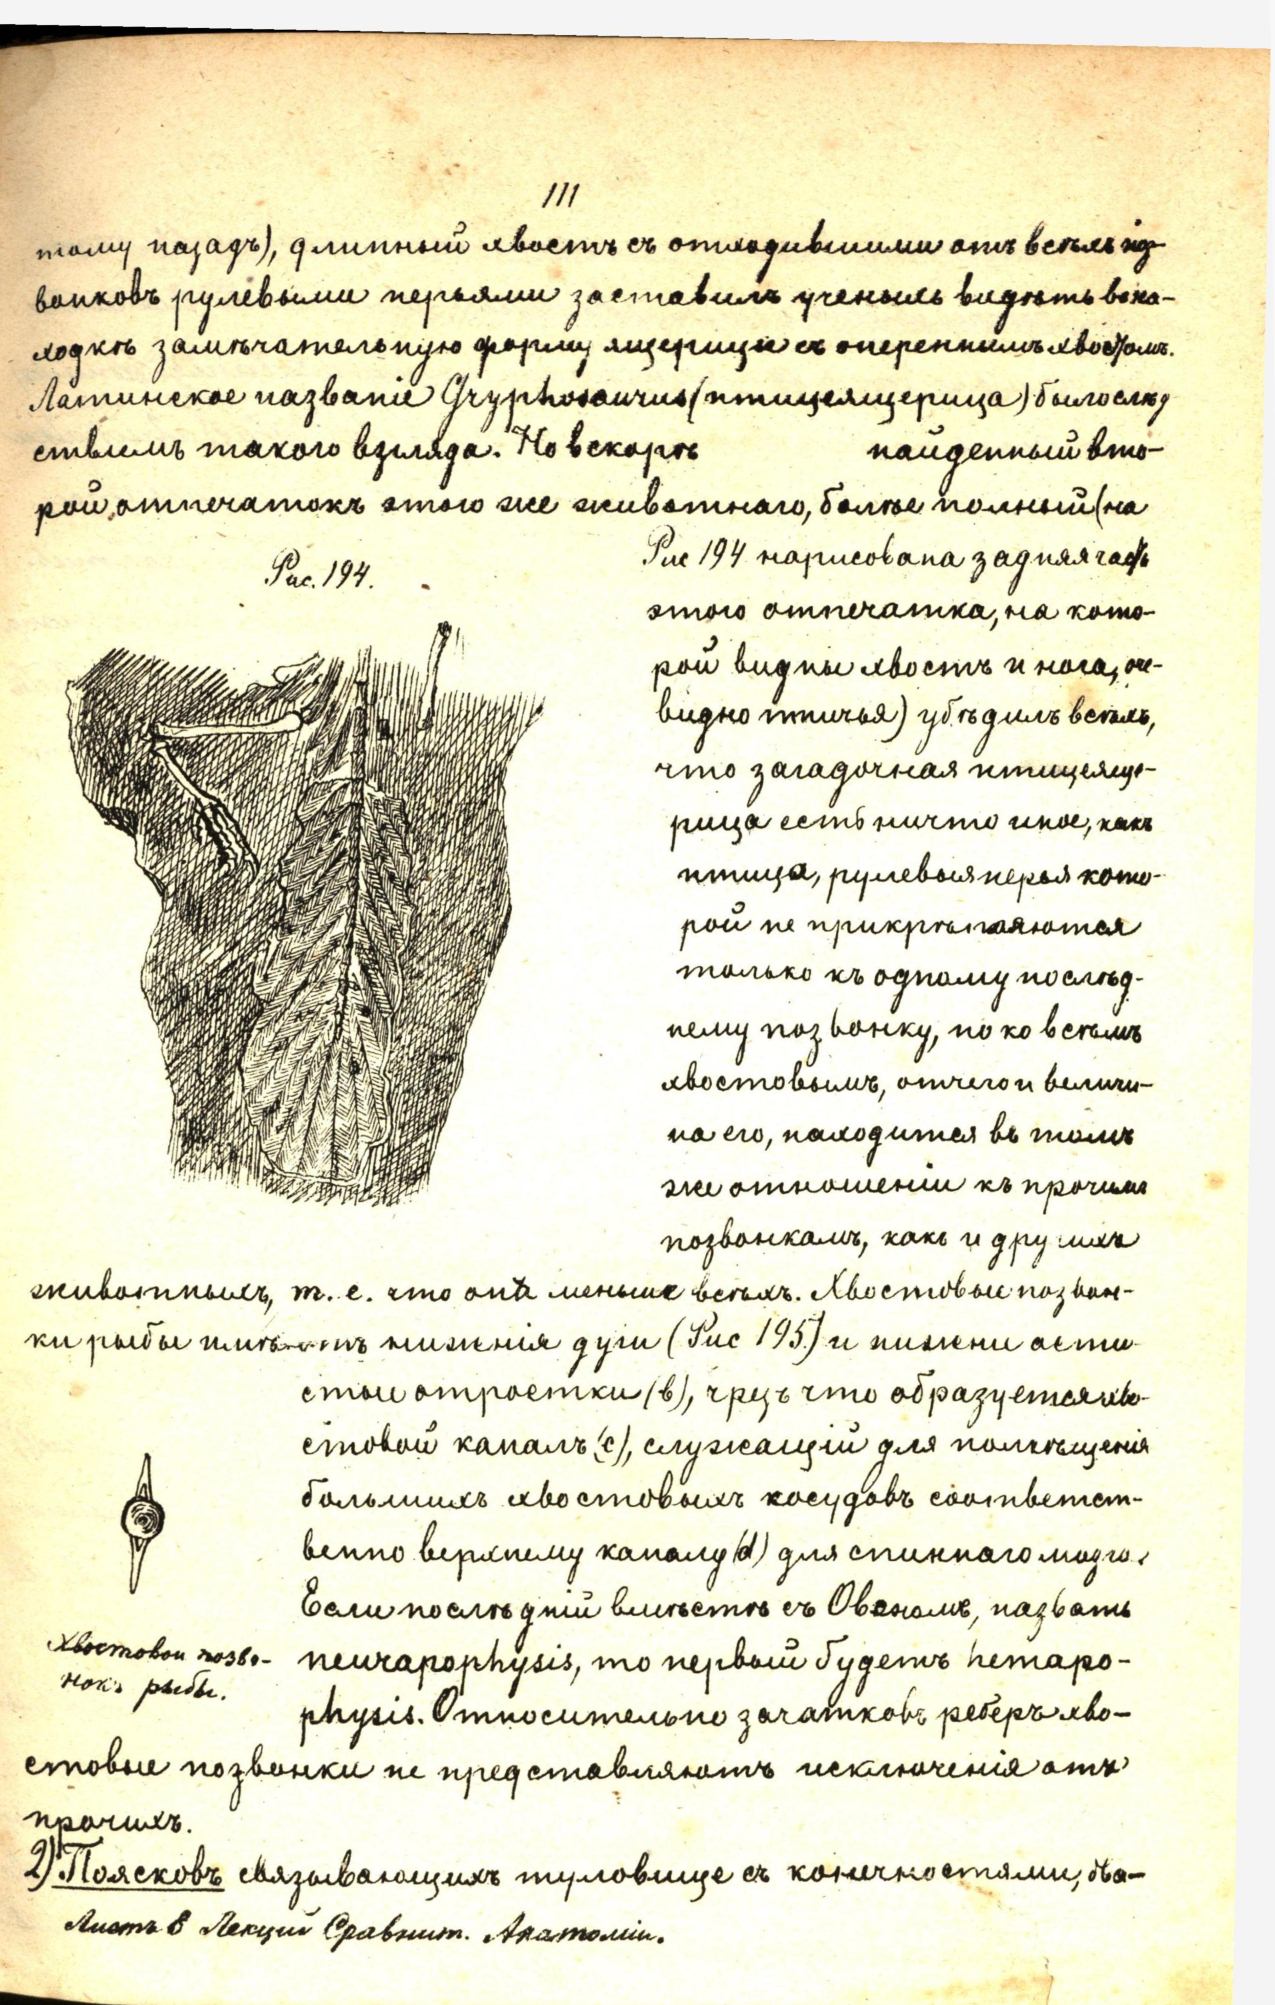 111
тому назадъ), длинный хвостъ съ отходившими отъ всѣхъ поз-
вонковъ рулевыми перьями заставилъ ученыхъ видѣть въ на-
ходкѣ замѣчательную форму ящерицы съ опереннымъ хвостомъ.
Латинское названіе Gryphosaurus (птицеящерица) было слѣд
ствіемъ такого взгляда. Но вскорѣ найденный вто-
рой отпечатокъ этого же животнаго, болѣе полный (на
Рис. 194.
Рис 194 нарисована задняя часть
этого отпечатка, на кото-
рой видны хвостъ и нога, оче-
видно птичья) убѣдилъ всѣхъ,
что загадочная птицеяще-
рица есть ничто иное, какъ
птица, рулевыя перья кото-
рой не прикрѣпляются
только къ одному послѣд-
нему позвонку, но ко всѣмъ
хвостовымъ, отчего и величи-
на его, находится въ томъ
же отношеніи къ прочимъ
позвонкамъ, какъ и другихъ
животныхъ, т. е. что онъ меньше всѣхъ. Хвостовые позвон-
ки рыбы имѣютъ нижнія дуги (Рис 195) и нижни ости-
стые отростки (b), чрезъ что образуется хво-
стовой каналъ (c), служащій для помѣщенія
большихъ хвостовыхъ сосудовъ соответст-
венно верхнему каналу (d) для спиннаго мозга.
Если послѣдній вмѣстѣ съ Овеномъ, назвать
neurapophysis, то первый будетъ hemapo-
physis. Относительно зачатковъ реберъ хво-
Хвостовой позво-
нокъ рыбы.
стовые позвонки не представляютъ исключенія отъ
прочихъ.
2) Поясковъ связывающихъ туловище съ конечностями, два-
Листъ 8 Лекций Сравнит. Анатоміи.